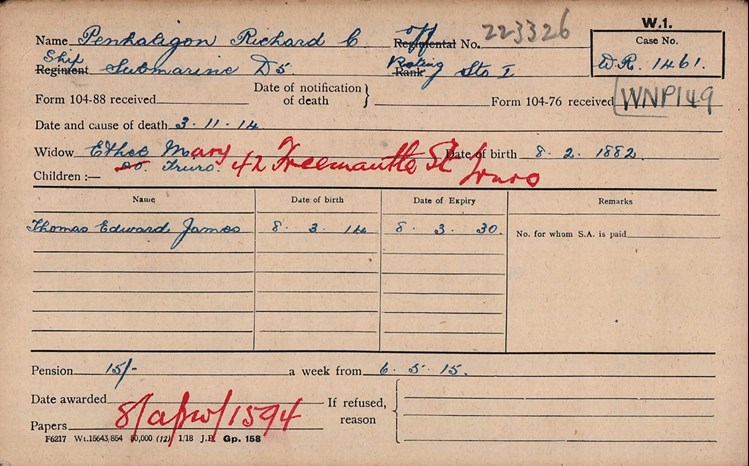 W.1.
Name Penhaligon Richard C Off Regimental No. 223326 Case No.
Ship Regiment Submarine D5 Rating Rank Sto I W.R. 1461.
Form 104-88 received Date of notification of death } Form 104-76 received WNP149
Date and cause of death 3.11.14
Widow Ethel Mary Date of birth 8.2.1882
do. Truro. 42 Freemantle St Truro
Children :—
Name Date of birth Date of Expiry Remarks
Thomas Edward James 8.3.14 8.3.30. No. for whom S.A. is paid
Pension 15/- a week from 6.5.15.
Date awarded If refused, reason
Papers 8/a/w/1594
F6217 Wt.15643/854 50,000 (12) 1/18 J.P. Gp. 158